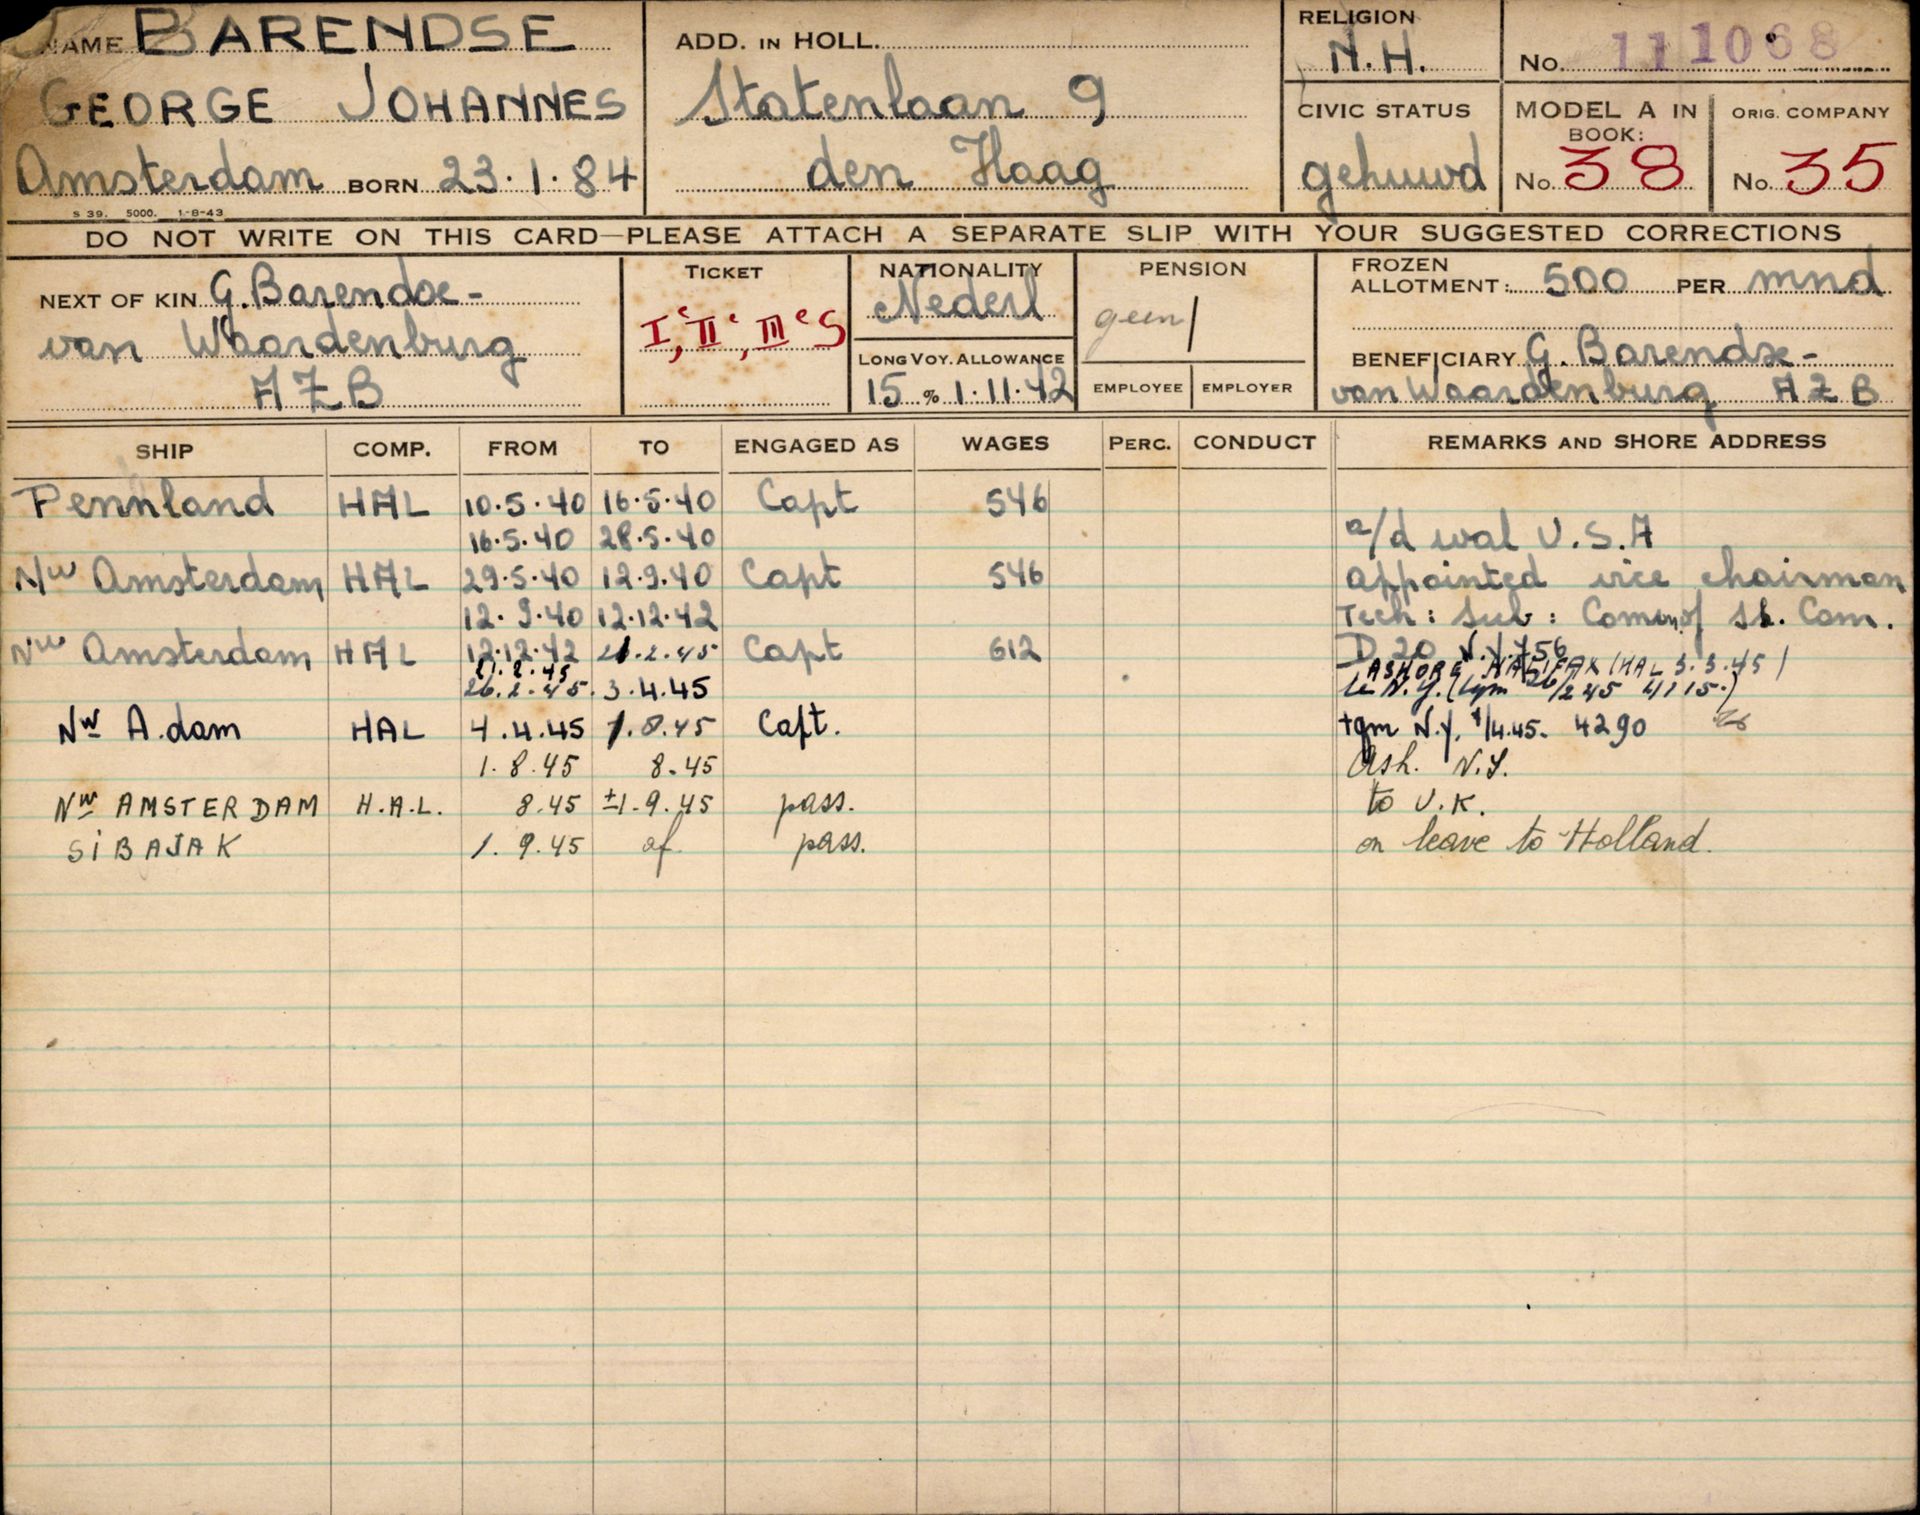 NAME BARENDSE
GEORGE JOHANNES
Amsterdam BORN 23.1.84
S 39. 5000. 1-8-43
ADD. IN HOLL.
Statenlaan 9
den Haag
RELIGION
N.H.
CIVIC STATUS
gehuwd
No. 111068
MODEL A IN BOOK:
No. 38
ORIG. COMPANY
No. 35
DO NOT WRITE ON THIS CARD—PLEASE ATTACH A SEPARATE SLIP WITH YOUR SUGGESTED CORRECTIONS
NEXT OF KIN G. Barendse-
van Waardenburg
AZB
TICKET
Iᵉ, IIᵉ, IIIᵉ S
NATIONALITY
Nederl
LONG VOY. ALLOWANCE
15 % 1.11.42
PENSION
geen
EMPLOYEE EMPLOYER
FROZEN
ALLOTMENT: 500 PER mnd
BENEFICIARY G. Barendse-
van Waardenburg AZB
SHIP COMP. FROM TO ENGAGED AS WAGES PERC. CONDUCT REMARKS AND SHORE ADDRESS
Pennland HAL 10.5.40 16.5.40 Capt 546
16.5.40 28.5.40 a/d wal U.S.A
Nw Amsterdam HAL 29.5.40 12.9.40 Capt 546 appointed vice chairman
12.9.40 12.12.42 Tech: Sub: Comm. of Sh. Com.
Nw Amsterdam HAL 12.12.42 21.2.45 Capt 612 D 20 N.Y. 756
21.2.45 ASHORE HALIFAX (HAL 3.3.45)
26.2.45 3.4.45 N.Y. 26/2 45 4115.)
Nw A.dam HAL 4.4.45 1.8.45 Capt. tgm N.Y. 4/4.45. 4290
1.8.45 8.45 Ash. N.Y.
Nw AMSTERDAM H.A.L. 8.45 ±1.9.45 pass. to U.K.
SIBAJAK 1.9.45 af pass. on leave to Holland.